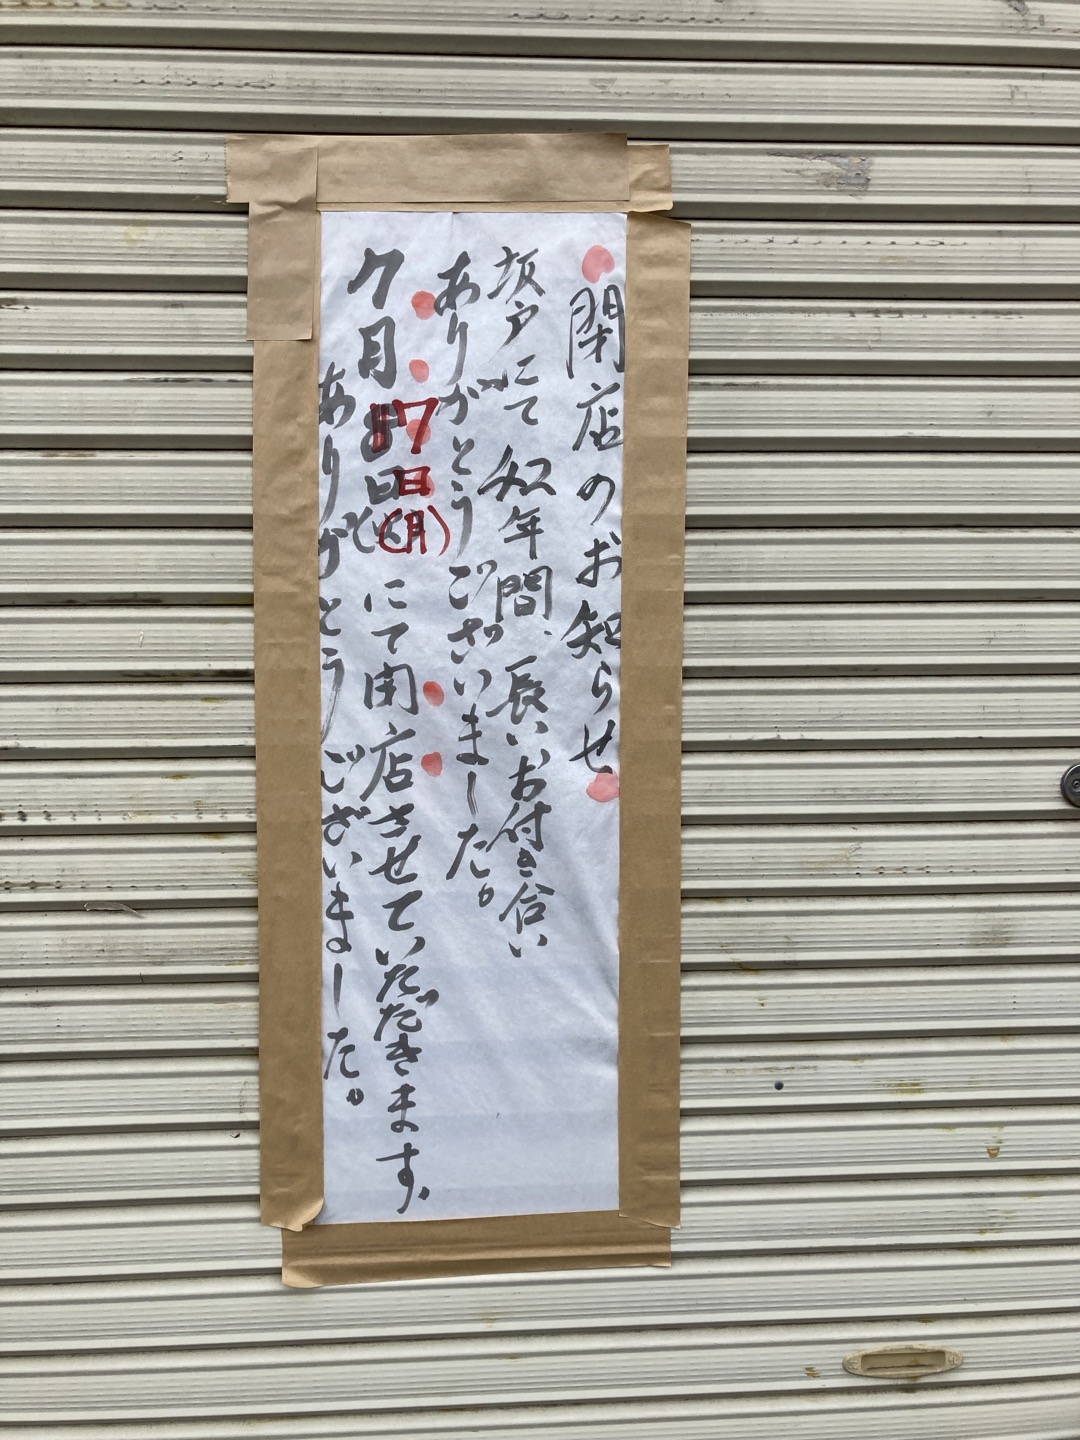 閉店のお知らせ
坂戸にて 42年間、長いお付き合い
ありがとうございました。
7月17日(月)にて閉店させていただきます、
ありがとうございました。